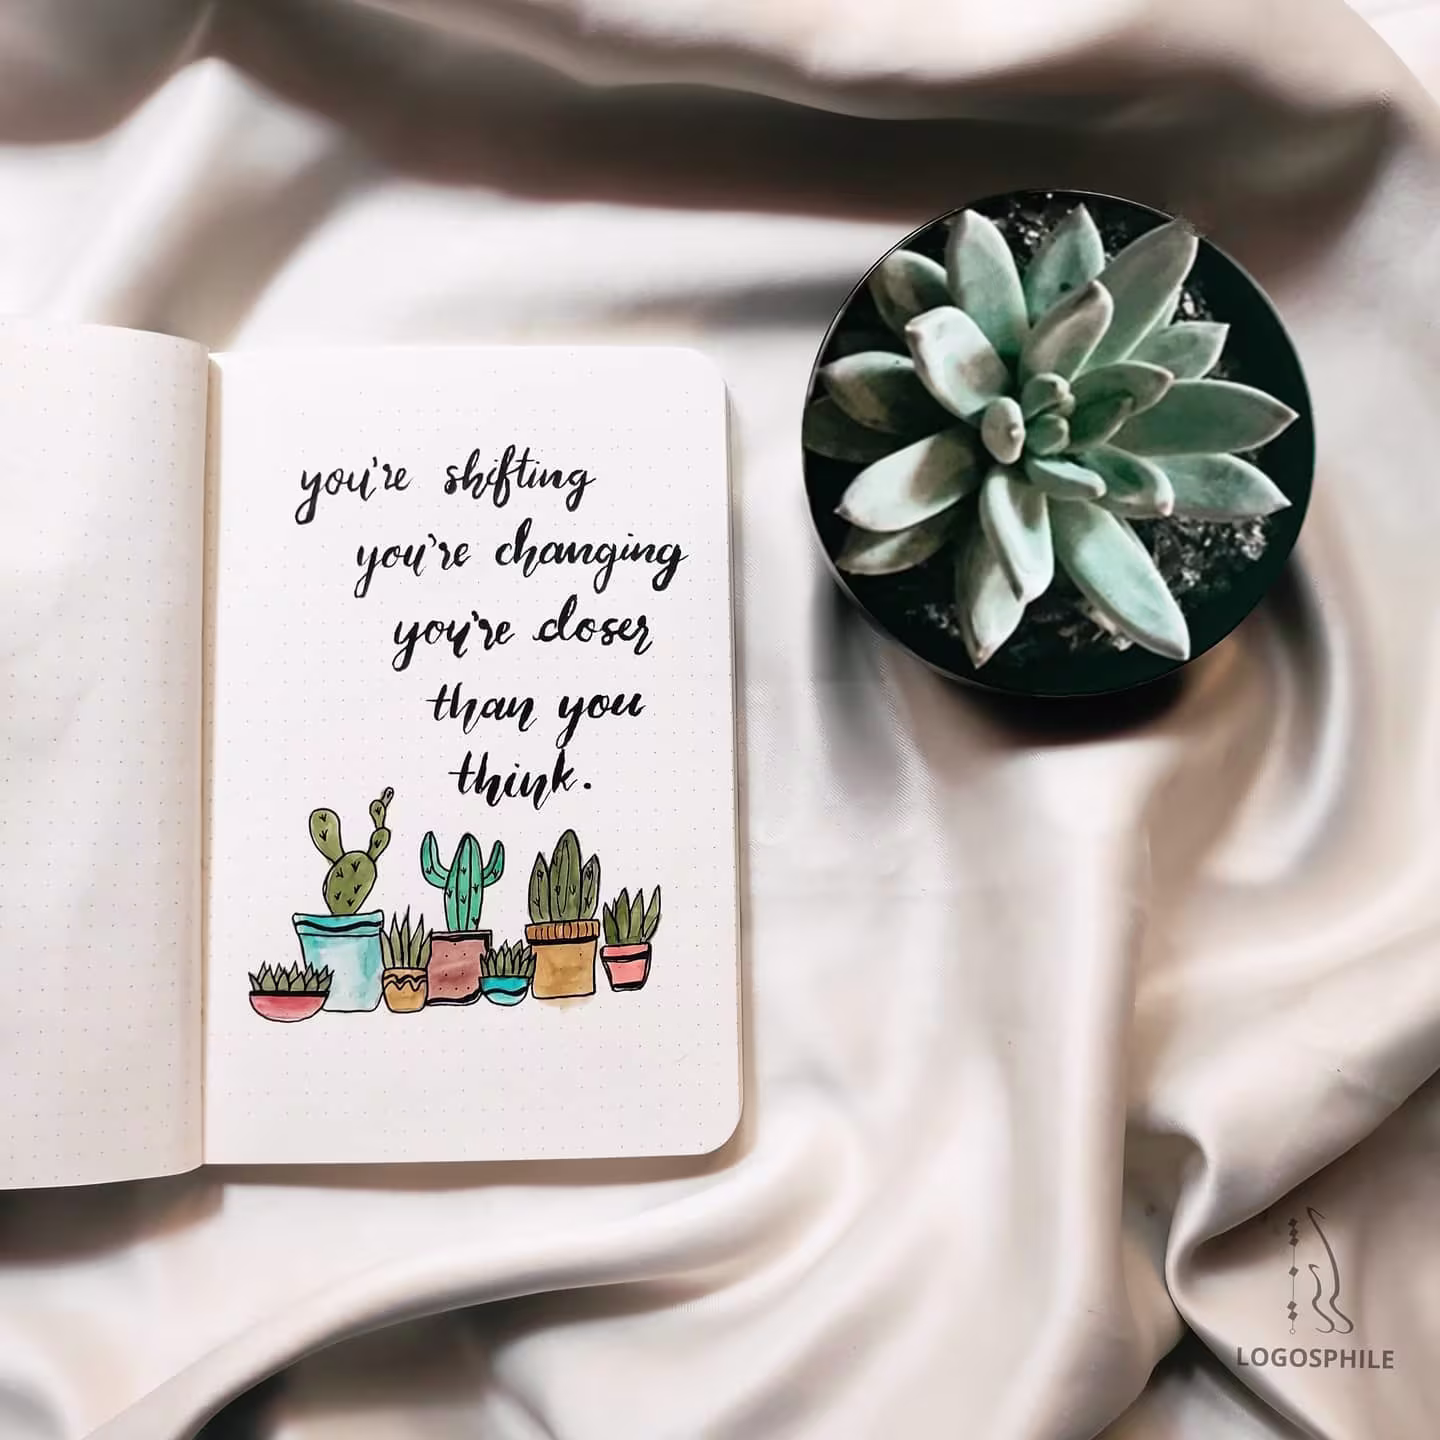 you're shifting
you're changing
you're closer
than you
think.
LOGOSPHILE